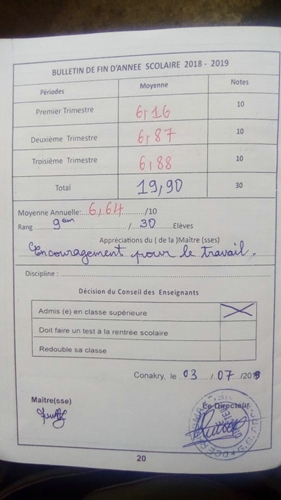 BULLETIN DE FIN D'ANNEE SCOLAIRE 2018 - 2019
Périodes Moyenne Notes
Premier Trimestre 6,16 10
Deuxième Trimestre 6,87 10
Troisième Trimestre 6,88 10
Total 19,90 30
Moyenne Annuelle: 6,64 /10
Rang 9em / 30 Elèves
Appréciations du ( de la )Maître (sses)
Encouragement pour le travail.
Discipline :
Décision du Conseil des Enseignants
Admis (e) en classe supérieure X
Doit faire un test à la rentrée scolaire
Redouble sa classe
Conakry, le 03 / 07 /2019
Maître(sse) Le Directeur
20